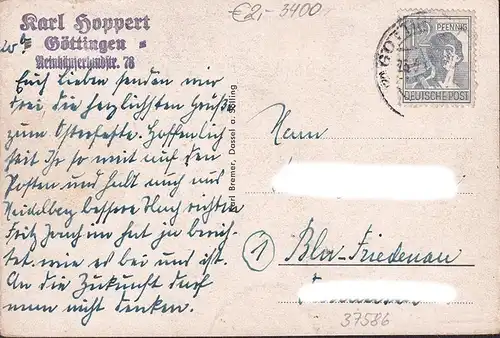 €2,- 3400
Karl Hoppert
Göttingen
Reinhäuserlandstr. 78
Euch Lieben senden wir
drei die herzlichsten Grüße
zum Osterfeste. Hoffentlich
seit Ihr so weit auf den
Posten und habt auch aus
Heidelberg bessere Nachrichten
Fritz Joachim hat zu berich-
tet wie es bei uns ist.
An die Zukunft darf
man nicht denken.
Karl Bremer, Dassel a. Solling
PFENNIG
DEUTSCHE POST
1
Bln-Friedenau
37586